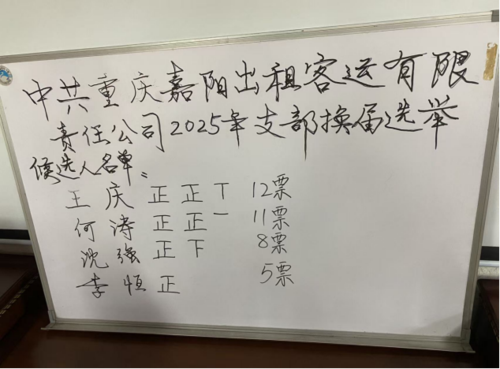 中共重庆嘉阳出租客运有限
责任公司2025年支部换届选举
候选人名单:
王庆 正正丅 12票
何涛 正正一 11票
沈强 正下 8票
李恒 正 5票